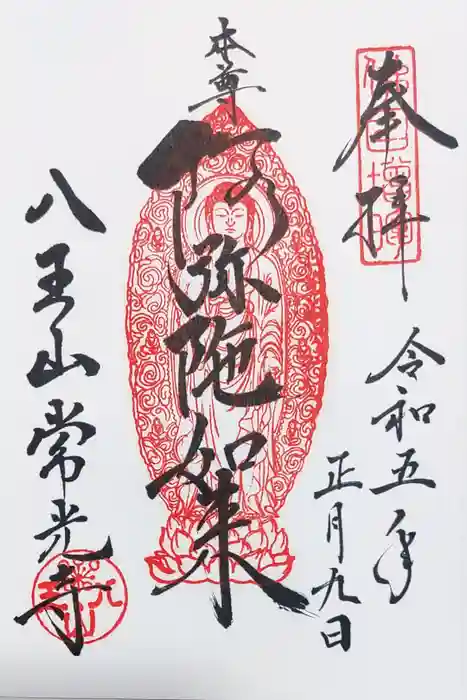 奉拝
令和五年
正月九日
本尊
阿弥陀如来
八王山常光寺